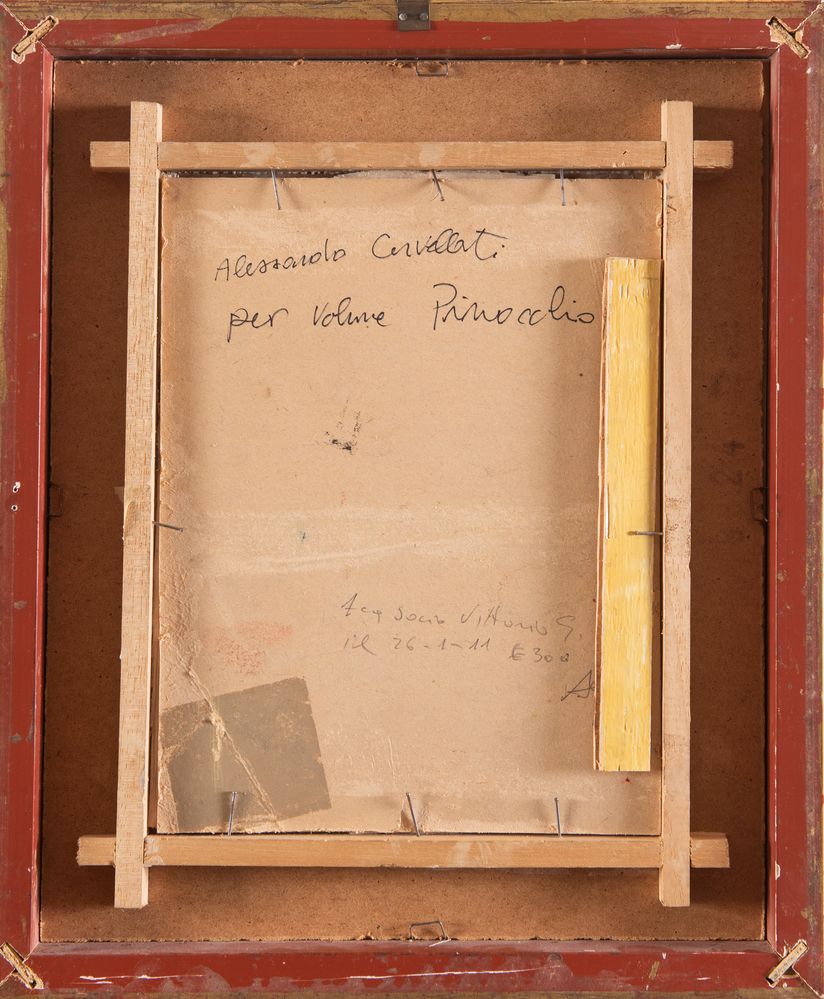 Alessandro Cervellati
per volume Pinocchio
Acq Socio Vittorio G.
il 26-1-11 € 300
A